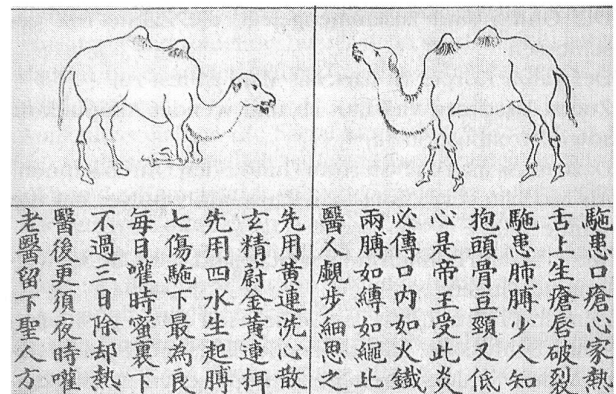 駞患口瘡心家熱
舌上生瘡唇破裂
駞患肺膊少人知
抱頭骨豆頸又低
心是帝王受此炎
必傳口内如火鐡
兩膊如縛如繩比
醫人覷步細思之
先用黄連洗心散
玄精蔚金黄連挕
先用四水生起膊
七傷駞下最為良
每日嚾時蜜裹下
不過三日除却熱
醫後更須夜時嚾
老醫留下聖人方